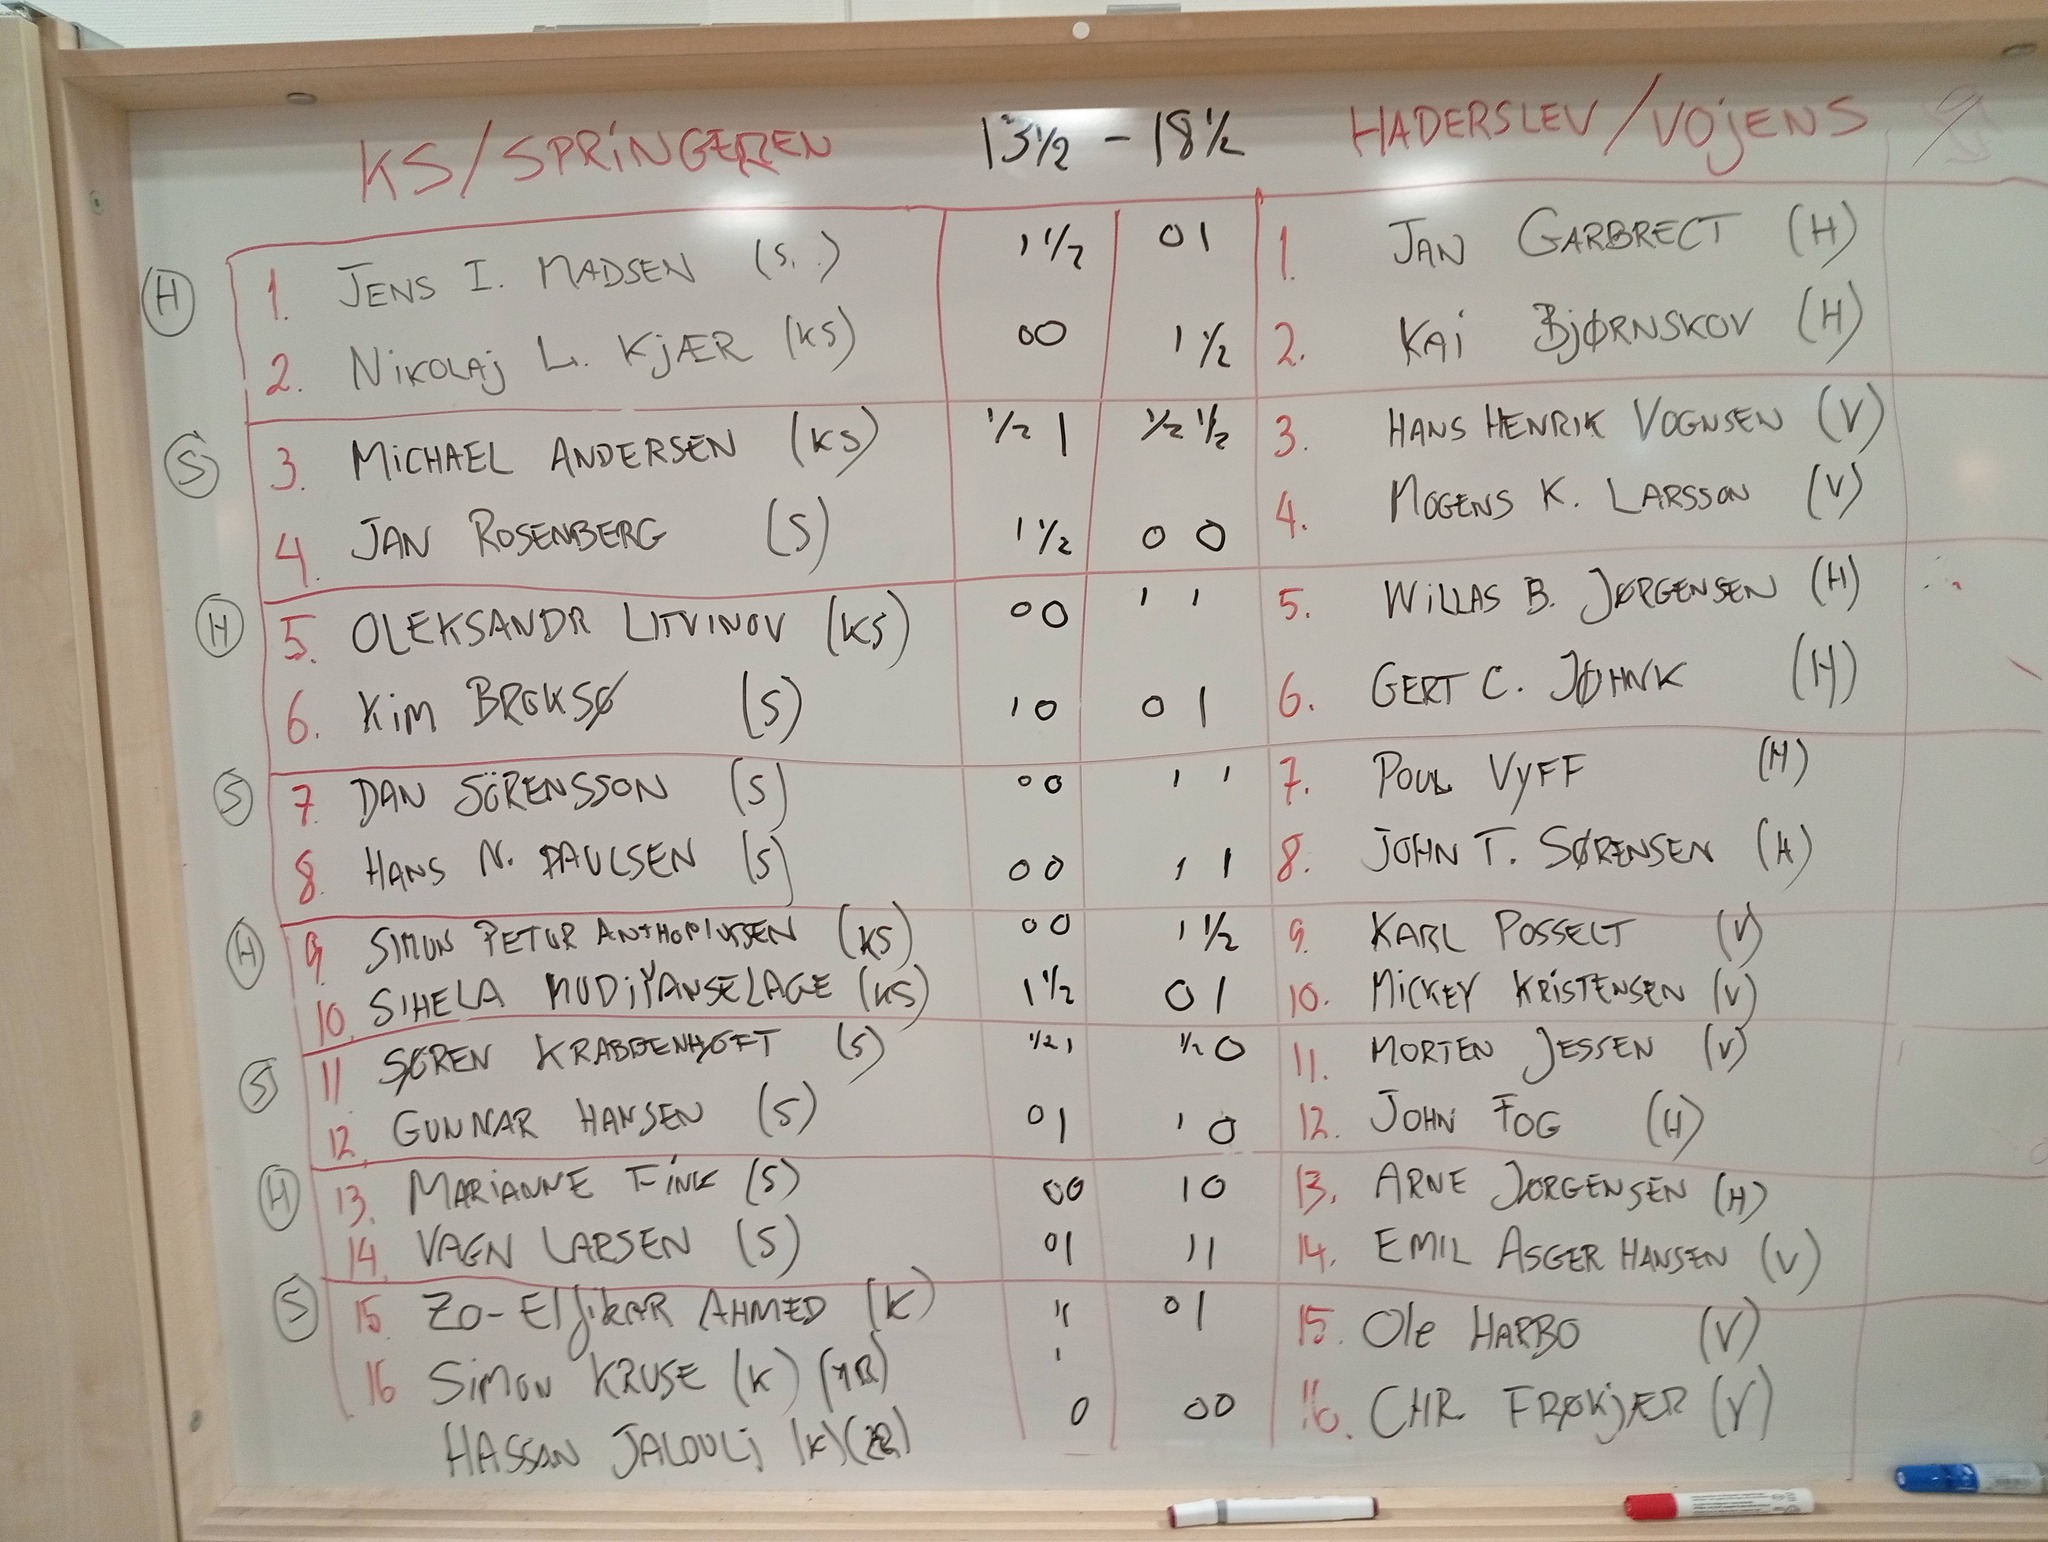 KS/SPRINGEREN 13½ - 18½ HADERSLEV/VOJENS
H
1. JENS I. MADSEN (S.) 1 ½ 0 1 1. JAN GARBRECT (H)
2. NIKOLAJ L. KJÆR (KS) 0 0 1 ½ 2. KAI BJØRNSKOV (H)
S
3. MICHAEL ANDERSEN (KS) ½ 1 ½ ½ 3. HANS HENRIK VOGNSEN (V)
4. JAN ROSENBERG (S) 1 ½ 0 0 4. MOGENS K. LARSSON (V)
H
5. OLEKSANDR LITVINOV (KS) 0 0 1 1 5. WILLAS B. JØRGENSEN (H)
6. KIM BROKSØ (S) 1 0 0 1 6. GERT C. JØHNK (H)
S
7. DAN SÖRENSSON (S) 0 0 1 1 7. POUL VYFF (H)
8. HANS N. PAULSEN (S) 0 0 1 1 8. JOHN T. SØRENSEN (H)
H
9 SIMUN PETUR (KS) 0 0 1 ½ 9. KARL POSSELT (V)
10. SIHELA MUDIYANSELAGE (KS) 1 ½ 0 1 10. MICKEY KRISTENSEN (V)
S
11 SØREN KRABBENHØFT (S) ½ 1 ½ 0 11. MORTEN JESSEN (V)
12. GUNNAR HANSEN (S) 0 1 1 0 12. JOHN FOG (H)
H
13. MARIANNE FINK (S) 0 0 1 0 13. ARNE JØRGENSEN (H)
14 VAGN LARSEN (S) 0 1 1 1 14. EMIL ASGER HANSEN (V)
S
15 AHMED (K) 1 1 0 1 15. OLE HARBO (V)
16 SIMON KRUSE (K) (1R) 1
HASSAN JALOULI (K) (2R) 0 0 0 16. CHR. FRØKJÆR (V)